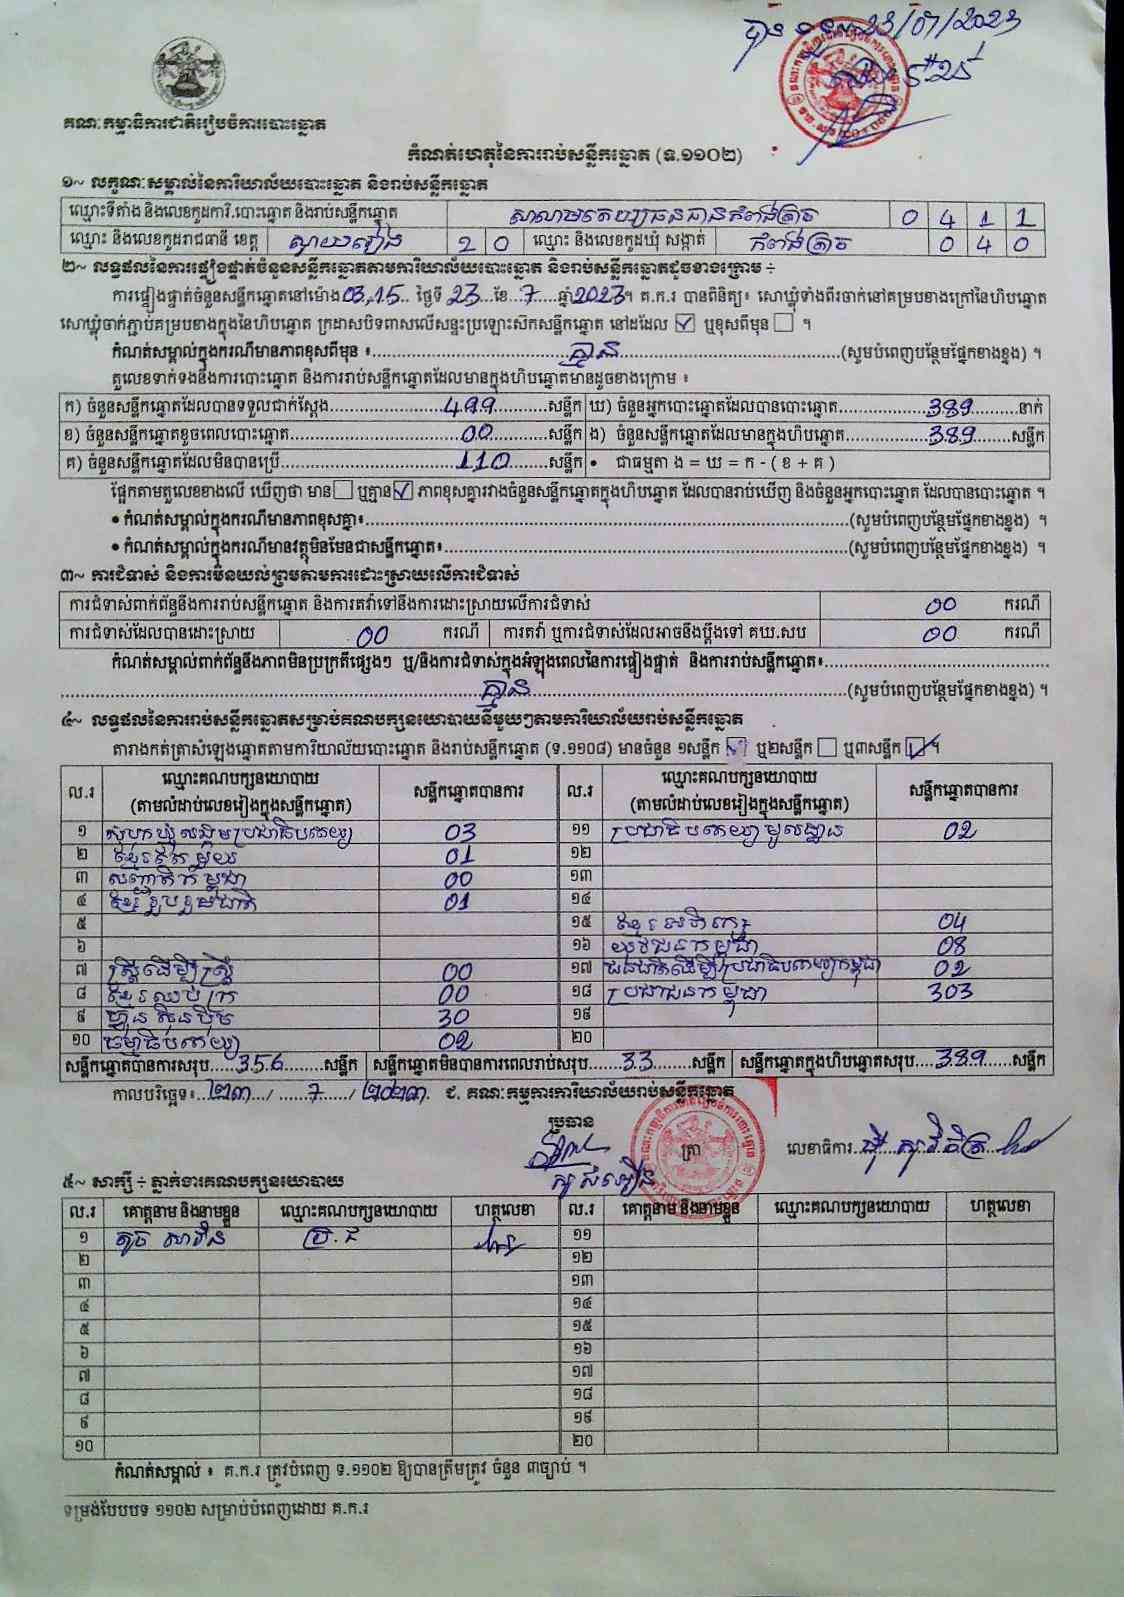 បាន ឃើញ 23/07/2023
គណៈកម្មាធិការជាតិរៀបចំការបោះឆ្នោត
កំណត់ហេតុនៃការរាប់សន្លឹកឆ្នោត (ទ.១១០២)
១~ លក្ខណៈសម្គាល់នៃការិយាល័យបោះឆ្នោត និងរាប់សន្លឹកឆ្នោត
ឈ្មោះទីតាំង និងលេខកូដការិ.បោះឆ្នោត និងរាប់សន្លឹកឆ្នោត 0 4 1 1
ឈ្មោះ និងលេខកូដរាជធានី ខេត្ត ស្វាយរៀង 2 0 ឈ្មោះ និងលេខកូដឃុំ សង្កាត់ 0 4 0
២~ លទ្ធផលនៃការផ្ទៀងផ្ទាត់ចំនួនសន្លឹកឆ្នោតតាមការិយាល័យបោះឆ្នោត និងរាប់សន្លឹកឆ្នោតដូចខាងក្រោម ÷
ការផ្ទៀងផ្ទាត់ចំនួនសន្លឹកឆ្នោតនៅម៉ោង 03,15 ថ្ងៃទី 23 ខែ 7 ឆ្នាំ 2023។ គ.ក.រ បានពិនិត្យ៖ សោឃ្លុំទាំងពីរចាក់នៅគម្របខាងក្រៅនៃហិបឆ្នោត
សោឃ្លុំចាក់ភ្ជាប់គម្របខាងក្នុងនៃហិបឆ្នោត ក្រដាសបិទពាសលើសន្ទះប្រឡោះស៊កសន្លឹកឆ្នោត នៅដដែល ☑ ឬខុសពីមុន ☐ ។
កំណត់សម្គាល់ក្នុងករណីមានភាពខុសពីមុន ៖ គ្មាន (សូមបំពេញបន្ថែមផ្នែកខាងខ្នង) ។
តួលេខទាក់ទងនឹងការបោះឆ្នោត និងការរាប់សន្លឹកឆ្នោតដែលមានក្នុងហិបឆ្នោតមានដូចខាងក្រោម ៖
ក) ចំនួនសន្លឹកឆ្នោតដែលបានទទួលជាក់ស្តែង 499 សន្លឹក ឃ) ចំនួនអ្នកបោះឆ្នោតដែលបានបោះឆ្នោត 389 នាក់
ខ) ចំនួនសន្លឹកឆ្នោតខូចពេលបោះឆ្នោត 00 សន្លឹក ង) ចំនួនសន្លឹកឆ្នោតដែលមានក្នុងហិបឆ្នោត 389 សន្លឹក
គ) ចំនួនសន្លឹកឆ្នោតដែលមិនបានប្រើ 110 សន្លឹក • ជាធម្មតា ង = ឃ = ក - ( ខ + គ )
ផ្អែកតាមតួលេខខាងលើ ឃើញថា មាន ☐ ឬគ្មាន ☑ ភាពខុសគ្នារវាងចំនួនសន្លឹកឆ្នោតក្នុងហិបឆ្នោត ដែលបានរាប់ឃើញ និងចំនួនអ្នកបោះឆ្នោត ដែលបានបោះឆ្នោត ។
• កំណត់សម្គាល់ក្នុងករណីមានភាពខុសគ្នា៖ (សូមបំពេញបន្ថែមផ្នែកខាងខ្នង) ។
• កំណត់សម្គាល់ក្នុងករណីមានវត្ថុមិនមែនជាសន្លឹកឆ្នោត៖ (សូមបំពេញបន្ថែមផ្នែកខាងខ្នង) ។
៣~ ការជំទាស់ និងការមិនយល់ព្រមតាមការដោះស្រាយលើការជំទាស់
ការជំទាស់ពាក់ព័ន្ធនឹងការរាប់សន្លឹកឆ្នោត និងការតវ៉ាទៅនឹងការដោះស្រាយលើការជំទាស់ 00 ករណី
ការជំទាស់ដែលបានដោះស្រាយ 00 ករណី ការតវ៉ា ឬការជំទាស់ដែលអាចនឹងប្តឹងទៅ គឃ.សប 00 ករណី
កំណត់សម្គាល់ពាក់ព័ន្ធនឹងភាពមិនប្រក្រតីផ្សេងៗ ឬ/និងការជំទាស់ក្នុងអំឡុងពេលនៃការផ្ទៀងផ្ទាត់ និងការរាប់សន្លឹកឆ្នោត៖
គ្មាន (សូមបំពេញបន្ថែមផ្នែកខាងខ្នង) ។
៤~ លទ្ធផលនៃការរាប់សន្លឹកឆ្នោតសម្រាប់គណបក្សនយោបាយនីមួយៗតាមការិយាល័យរាប់សន្លឹកឆ្នោត
តារាងកត់ត្រាសំឡេងឆ្នោតតាមការិយាល័យបោះឆ្នោត និងរាប់សន្លឹកឆ្នោត (ទ.១១០៨) មានចំនួន ១សន្លឹក ☑ ឬ២សន្លឹក ☐ ឬ៣សន្លឹក ☑ ។
ល.រ ឈ្មោះគណបក្សនយោបាយ (តាមលំដាប់លេខរៀងក្នុងសន្លឹកឆ្នោត) សន្លឹកឆ្នោតបានការ ល.រ ឈ្មោះគណបក្សនយោបាយ (តាមលំដាប់លេខរៀងក្នុងសន្លឹកឆ្នោត) សន្លឹកឆ្នោតបានការ
១ សំបុកឃ្មុំសង្គមប្រជាធិបតេយ្យ 03 ១១ ប្រជាធិបតេយ្យមូលដ្ឋាន 02
២ ខ្មែរតែមួយ 01 ១២
៣ សញ្ជាតិកម្ពុជា 00 ១៣
៤ ខ្មែររួបរួមជាតិ 01 ១៤
៥ ១៥ ខ្មែរអភិរក្ស 04
៦ ១៦ យុវជនកម្ពុជា 08
៧ ស្ត្រីដើម្បីស្ត្រី 00 ១៧ ជនជាតិដើមប្រជាធិបតេយ្យកម្ពុជា 02
៨ ខ្មែរឈប់ក្រ 00 ១៨ ប្រជាជនកម្ពុជា 303
៩ ហ្វ៊ុនស៊ិនប៉ិច 30 ១៩
១០ ធម្មាធិបតេយ្យ 02 ២០
សន្លឹកឆ្នោតបានការសរុប 356 សន្លឹក សន្លឹកឆ្នោតមិនបានការពេលរាប់សរុប 33 សន្លឹក សន្លឹកឆ្នោតក្នុងហិបឆ្នោតសរុប 389 សន្លឹក
កាលបរិច្ឆេទ៖ ២៣ / 7 / ២០២៣ ជ. គណៈកម្មការការិយាល័យរាប់សន្លឹកឆ្នោត
ប្រធាន
ត្រា
លេខាធិការ
៥~ សាក្សី ÷ ភ្នាក់ងារគណបក្សនយោបាយ
ល.រ គោត្តនាម និងនាមខ្លួន ឈ្មោះគណបក្សនយោបាយ ហត្ថលេខា ល.រ គោត្តនាម និងនាមខ្លួន ឈ្មោះគណបក្សនយោបាយ ហត្ថលេខា
១ ប្រ.ជ ១១
២ ១២
៣ ១៣
៤ ១៤
៥ ១៥
៦ ១៦
៧ ១៧
៨ ១៨
៩ ១៩
១០ ២០
កំណត់សម្គាល់ ៖ គ.ក.រ ត្រូវបំពេញ ទ.១១០២ ឱ្យបានត្រឹមត្រូវ ចំនួន ៣ច្បាប់ ។
ទម្រង់បែបបទ ១១០២ សម្រាប់បំពេញដោយ គ.ក.រ